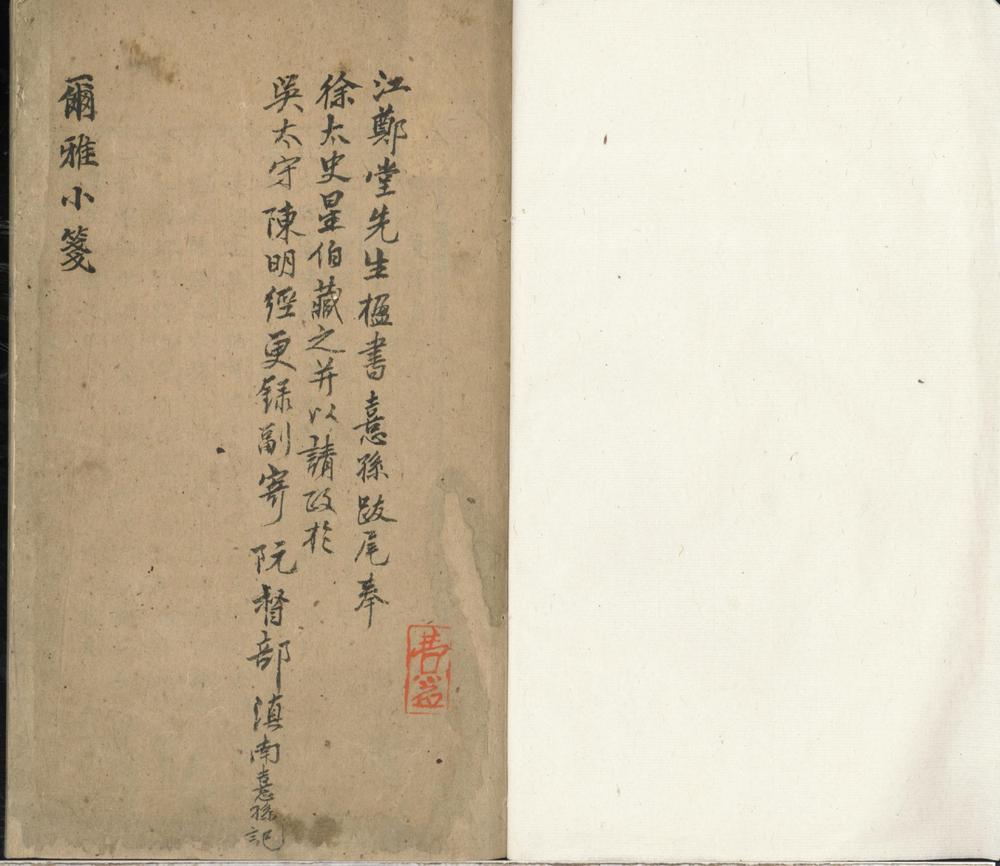 江鄭堂先生楹書憙孫跋尾奉
徐太史星伯藏之并以請政於
吳太守陳明經更録副寄阮督部滇南憙孫記
爾雅小箋